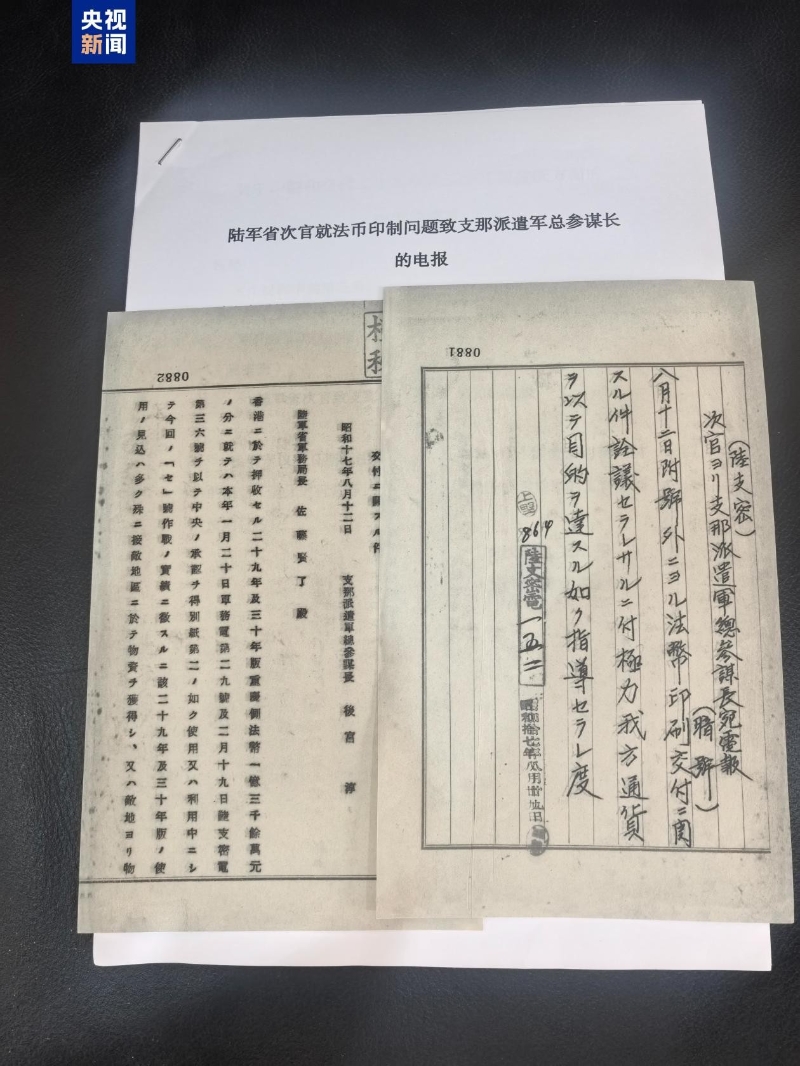 央视
新闻
陆军省次官就法币印制问题致支那派遣军总参谋长
的电报
0881
(陸支密)
次官ヨリ支那派遣軍總參謀長宛電報
(暗號)
八月十二日附號外ニヨル法幣印刷交付ニ関
スル件詮議セラレサルニ付極力我方通貨
ヲ以テ目的ヲ達スル如ク指導セラレ度
上聖
864
陸支密電一五二
昭和拾七年八月廿九日
0882
交付ニ關スル件
昭和十七年八月十二日
支那派遣軍總參謀長 後宮 淳
陸軍省軍務局長 佐藤賢了殿
香港ニ於テ押收セル二十九年及三十年版重慶側法幣一億三千餘萬元
ノ分ニ就テハ本年一月二十日軍務電第二九號及二月十九日陸支密電
第三六號ヲ以テ中央ノ承認ヲ得別紙第二ノ如ク使用又ハ利用中ニシ
テ今回ノ「セ」號作戰ノ實績ニ徵スルニ該二十九年及三十年版ノ使
用ノ見込ハ多ク殊ニ接敵地區ニ於テ物資ヲ獲得シ、又ハ敵地ヨリ物